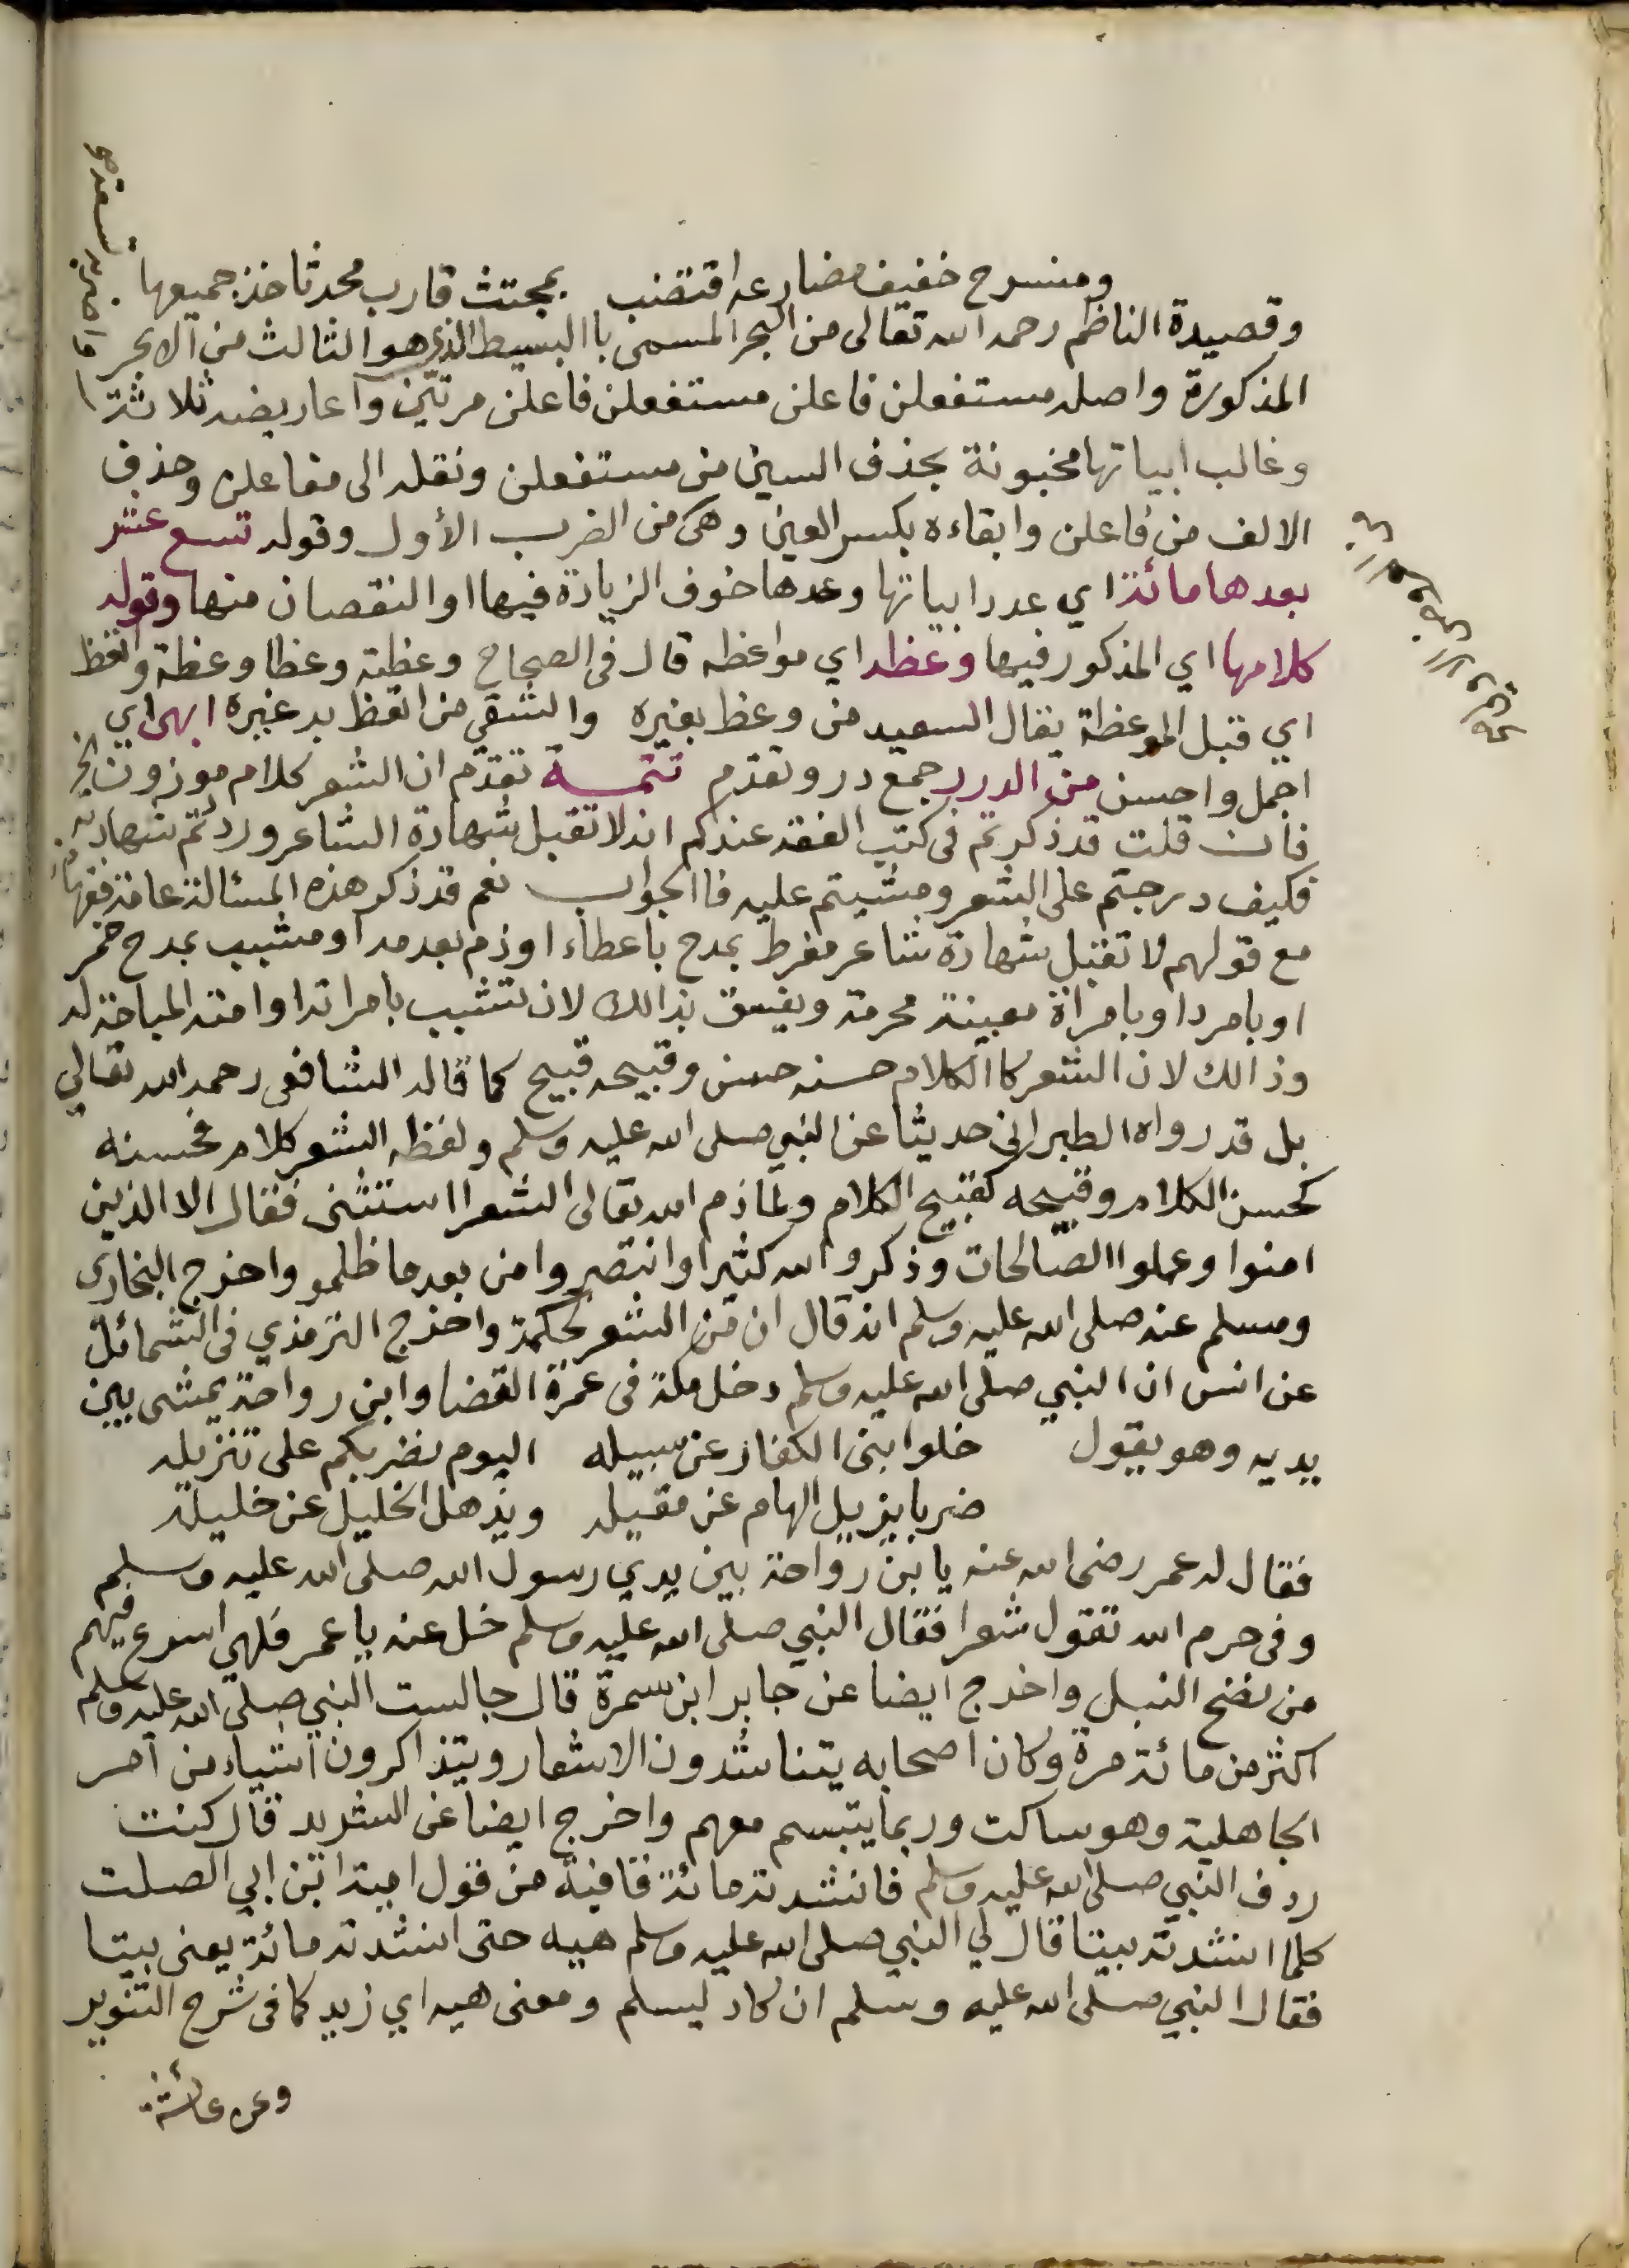 ومنسرح خفيف مضارعه اقتضب بمجتث قارب محدثا خذ جميعها
وقصيدة الناظم رحمه الله تعالى من البحر المسمى باالبسيط الذي هو الثالث من الابحر
المذكورة واصله مستفعلن فاعلن مستفعلن فاعلن مرتين واعاريضه ثلاثة
وغالب ابياتها مخبونة بحذف السين من مستفعلن ونقله الى مفاعلن وحذف
الالف من فاعلن وابقاءه بكسر العين وهي من الضرب الأول وقوله تسع عشر
بعدها مائة اي عدد ابياتها وعدها خوف الزيادة فيها او النقصان منها وقوله
كلامها اي المذكور فيها وعظه اي مواعظه قال في الصحاح وعظته وعظا وعظة واتعظ
اي قبل الموعظة يقال السعيد من وعظ بغيره والشقي من اتعظ به غيره ابهى اي
اجمل واحسن من الدرر جمع در وتقدم تتمة تقدم ان الشعر كلام موزون الخ
فان قلت قد ذكرتم في كتب الفقه عندكم انه لا تقبل شهادة الشاعر ورد تم شهادته
فكيف درجتم على الشعر ومشيتم عليه فاالجواب نعم قد ذكر هذه المسالة عامة فقهائنا
مع قولهم لا تقبل شهادة شاعر مفرط بمدح باعطاء او ذم بعدمه او مشبب بمدح خمر
او بامرد او بامراة معينة محرمة ويفسق بذالك لا ان تشبب بامراته او امته المباحة له
وذالك لان الشعر كاالكلام حسنه حسن وقبيحه قبيح كما قاله الشافعي رحمه الله تعالي
بل قد رواه الطبراني حديثا عن النبي صلى الله عليه وسلم ولفظه الشعر كلام فحسنه
كحسن الكلام وقبيحه كقبيح الكلام ولما ذم الله تعالى الشعرا استثنى فقال الا الذين
امنوا وعملوا الصالحات وذكروا الله كثيرا وانتصروا من بعد ما ظلمو واخرج البخاري
ومسلم عنه صلى الله عليه وسلم انه قال ان من الشعر لحكمة واخرج الترمذي في الشمائل
عن انس ان النبي صلى الله عليه وسلم دخل مكة في عمرة القضا وابن رواحة يمشى بين
يديه وهو يقول خلوا بنى الكفار عن سبيله اليوم نضربكم على تنزيله
ضربا يزيل الهام عن مقيله ويذهل الخليل عن خليله
فقال له عمر رضى الله عنه يا بن رواحة بين يدي رسول الله صلى الله عليه وسلم
وفى حرم الله تقول شعرا فقال النبي صلى الله عليه وسلم خل عنه يا عمر فلهي اسرع فيهم
من نضح النبل واخرج ايضا عن جابر ابن سمرة قال جالست النبي صلى الله عليه وسلم
اكثر من مائة مرة وكان اصحابه يتناشدون الاشعار ويتذاكرون اشياء من امر
الجاهلية وهو ساكت وربما يتبسم معهم واخرج ايضا عن الشريد قال كنت
ردف النبي صلى الله عليه وسلم فانشدته مائة قافية من قول امية ابن ابي الصلت
كلما انشدته بيتا قال لي النبي صلى الله عليه وسلم هيه حتى انشدته مائة يعنى بيتا
فقال النبي صلى الله عليه وسلم ان كاد ليسلم ومعنى هيه اي زيد كما في شرح التنوير
وعن عائشة